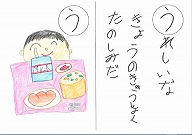 う
うれしいな
きょうのきゅうしょく
たのしみだ